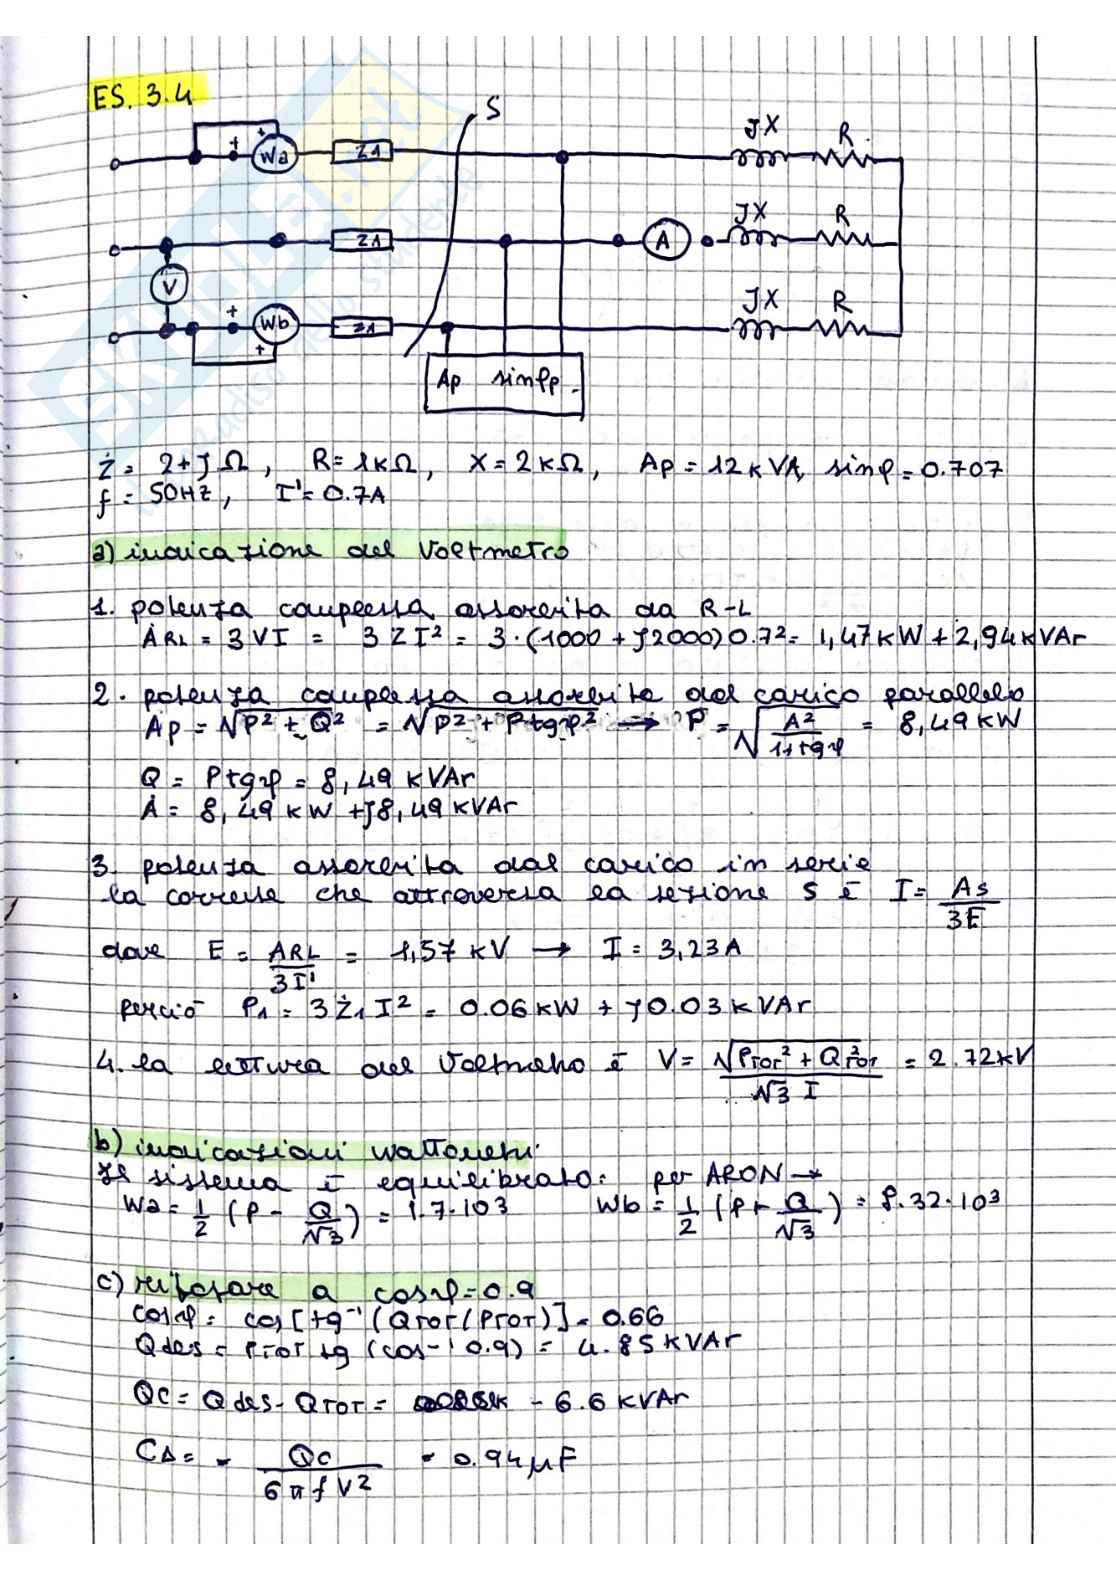 ES. 3.4
S
Wa
Z1
JX
R
Z1
A
JX
R
V
Wb
Z1
JX
R
Ap sinφp
Ż = 2+J Ω, R= 1kΩ, X= 2kΩ, Ap = 12kVA, sinφ=0.707
f = 50HZ, I'= 0.7A
a) indicazione del Voltmetro
1. potenza complessa assorbita da R-L
ȦRL = 3VI = 3ZI² = 3·(1000+J2000)0.7²= 1,47kW+2,94kVAr
2. potenza complessa assorbita dal carico parallelo
Ȧp = √P²+Q² = √P²+Ptgφ² → P = √A²/1+tgφ = 8,49 kW
Q = Ptgφ = 8,49 kVAr
Ȧ = 8,49 kW +J8,49 kVAr
3. potenza assorbita dal carico in serie
la corrente che attraversa la sezione S è I= As/3E
dove E = ARL/3I' = 1,57 kV → I = 3,23A
perciò P1 = 3Ż1I² = 0.06kW + J0.03kVAr
4. la lettura del Voltmetro è V= √PTOT²+QTOT²/√3 I = 2.72kV
b) indicazioni wattmetri
Il sistema è equilibrato: per ARON →
Wa = 1/2 (P - Q/√3) = 1.7·10³ Wb = 1/2 (P+ Q/√3) = 8.32·10³
c) rifasare a cosφ=0.9
cosφ = cos[tg⁻¹(QTOT/PTOT)] = 0.66
Qdes = PTOT tg (cos⁻¹0.9) = 4.85KVAr
QC = Qdes- QTOT = - 6.6 KVAr
CΔ= - QC/6πfV² = 0.94μF